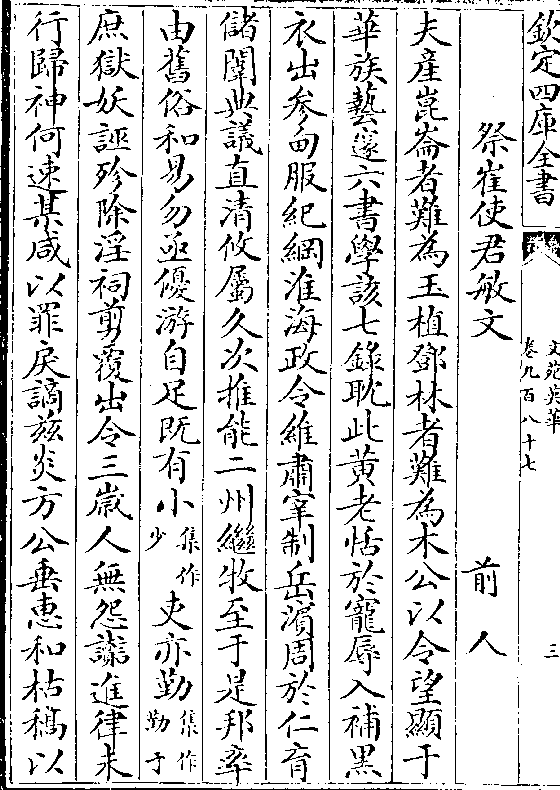 欽定四庫全書
文苑英華
卷九百八十七
三
祭崔使君敏文 前人
夫産崑崙者難為玉植鄧林者難為木公以令望顯于
華族藝邃六書學該七錄耽此黄老恬於寵辱入補黑
衣出參甸服紀綱淮海政令維肅宰制岳濱周於仁育
儲闈典議直清攸屬久次推能二州繼牧至于是邦率
由舊俗和易勿亟優游自足既有小集作少吏亦勤集作勤于
庶獄妖誣殄除淫祠翦覆出令三嵗人無怨讟進律未
行歸神何速某咸以罪戾謫兹炎方公垂惠和枯槁以